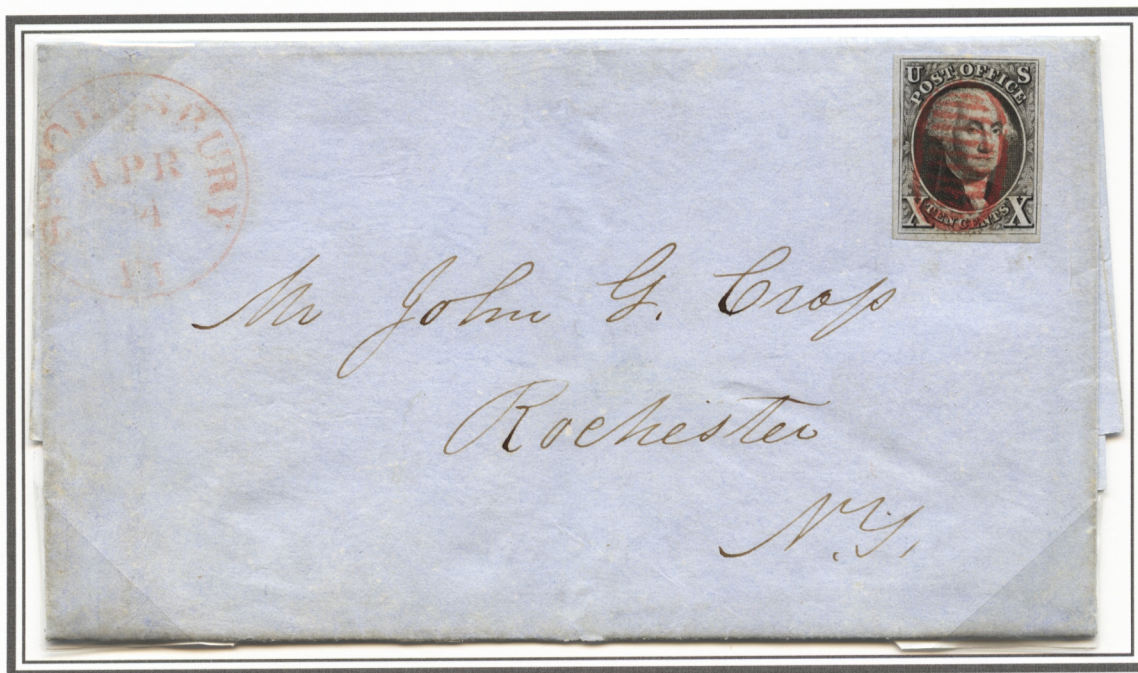 APR
4
U S
POST OFFICE
X TEN CENTS X
Mr John G. Crop
Rochester
N.Y.